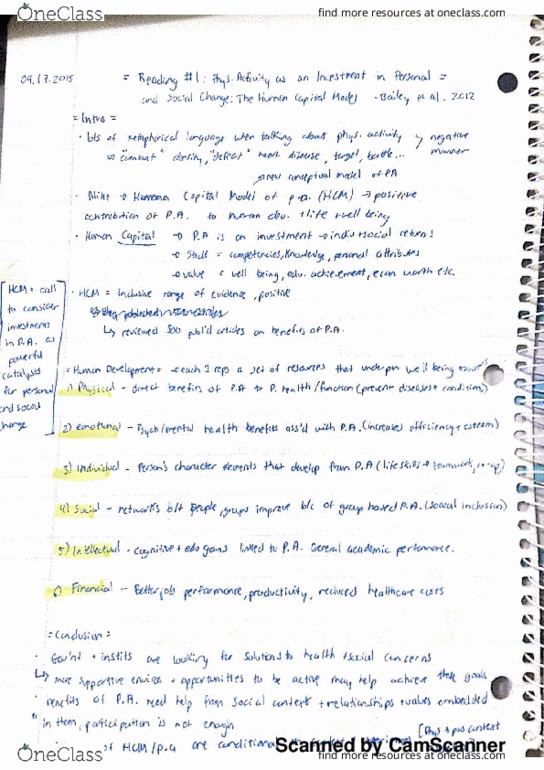 OneClass
find more resources at oneclass.com
09.17.2015
= Reading #1: Phys. Activity as an Investment in Personal =
and Social Change: The Human Capital Model - Bailey et al. 2012
= Intro =
· lots of metaphorical language when talking about phys. activity
negative manner
"combat" obesity, "defeat" disease, target, battle...
new conceptual model of PA
· Nike → Human Capital Model of p.a. (HCM) → positive
contribution of P.A. to human dev. + life + well being
· Human Capital → P.A is an investment → indiv + social returns
→ Stock = competencies, knowledge, personal attributes
→ value = well being, edu. achievement, econ worth etc.
· HCM = inclusive range of evidence, positive
↳ reviewed 500 pub'd articles on benefits of P.A.
HCM = call
to consider
investments
in P.A. as
powerful
catalysts
for personal
and social
change
= Human Development = → each 1 reps a set of resources that underpin well being
1) Physical - direct benefits of P.A to P. health/function (prevent diseases + conditions)
2) emotional - Psych/mental health benefits ass'd with P.A. (increases efficiency + esteem)
3) Individual - Person's character elements that develop from P.A (life skills → teamwork, co-op)
4) Social - networks b/t people, groups improve b/c of group based P.A. (social inclusion)
5) Intellectual - cognitive + edu gains linked to P.A. General academic performance.
6) Financial - Better job performance, productivity, reduced healthcare costs
= Conclusion =
· Gov'nt + instits are looking for solutions to health + social concerns
↳ more supportive environs + opportunities to be active may help achieve these goals
· benefits of P.A. need help from social context + relationships + values embedded
in them, participation is not enough
of HCM/p.a are conditional
[Phys + pos context
Scanned by CamScanner
OneClass
find more resources at oneclass.com